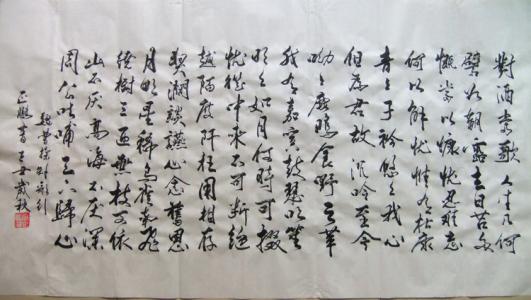 對酒當歌人生几何
譬如朝露去日苦多
慨當以慷忧思難忘
何以解忧惟有杜康
青青子衿悠悠我心
但為君故沉吟至今
呦呦鹿鳴食野之苹
我有嘉宾鼓瑟吹笙
明明如月何時可掇
忧從中來不可断絕
越陌度阡枉用相存
契濶談讌心念舊恩
月明星稀烏鵲南飛
绕樹三匝無枝可依
山不厌高海不厌深
周公吐哺天下歸心
魏曹操短歌行